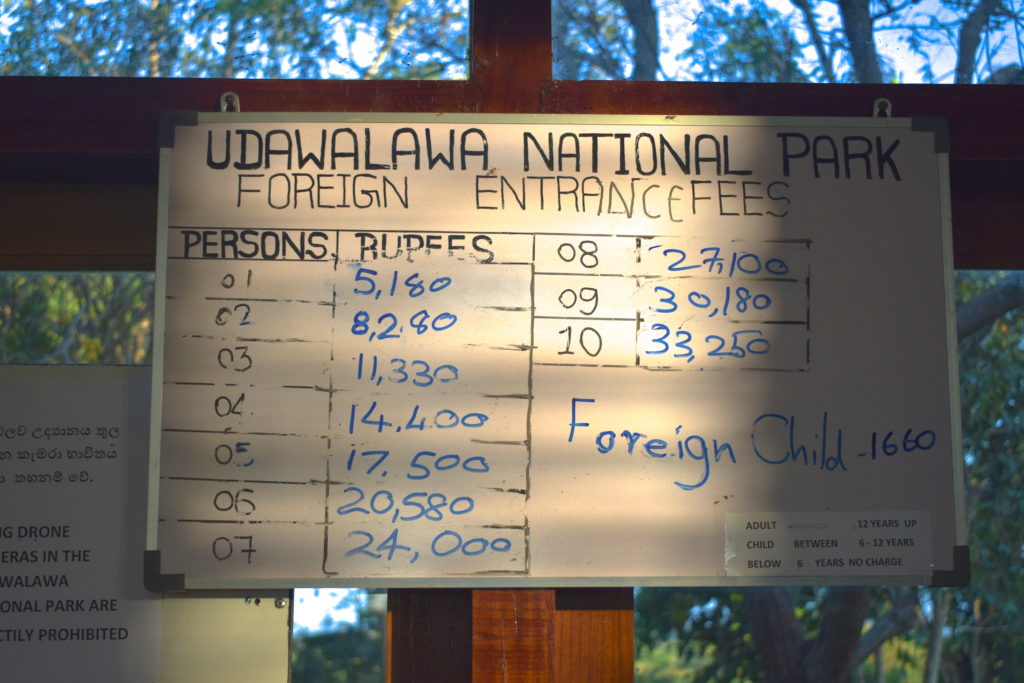 UDAWALAWA NATIONAL PARK
FOREIGN ENTRANCE FEES
PERSONS RUPEES
01 5,180
02 8,280
03 11,330
04 14,400
05 17,500
06 20,580
07 24,000
08 27,100
09 30,180
10 33,250
Foreign Child - 1660
ADULT 12 YEARS UP
CHILD BETWEEN 6 - 12 YEARS
BELOW 6 YEARS NO CHARGE
උද්‍යානය තුල
කැමරා භාවිතය
තහනම් වේ.
DRONE
IN THE
PARK ARE
PROHIBITED